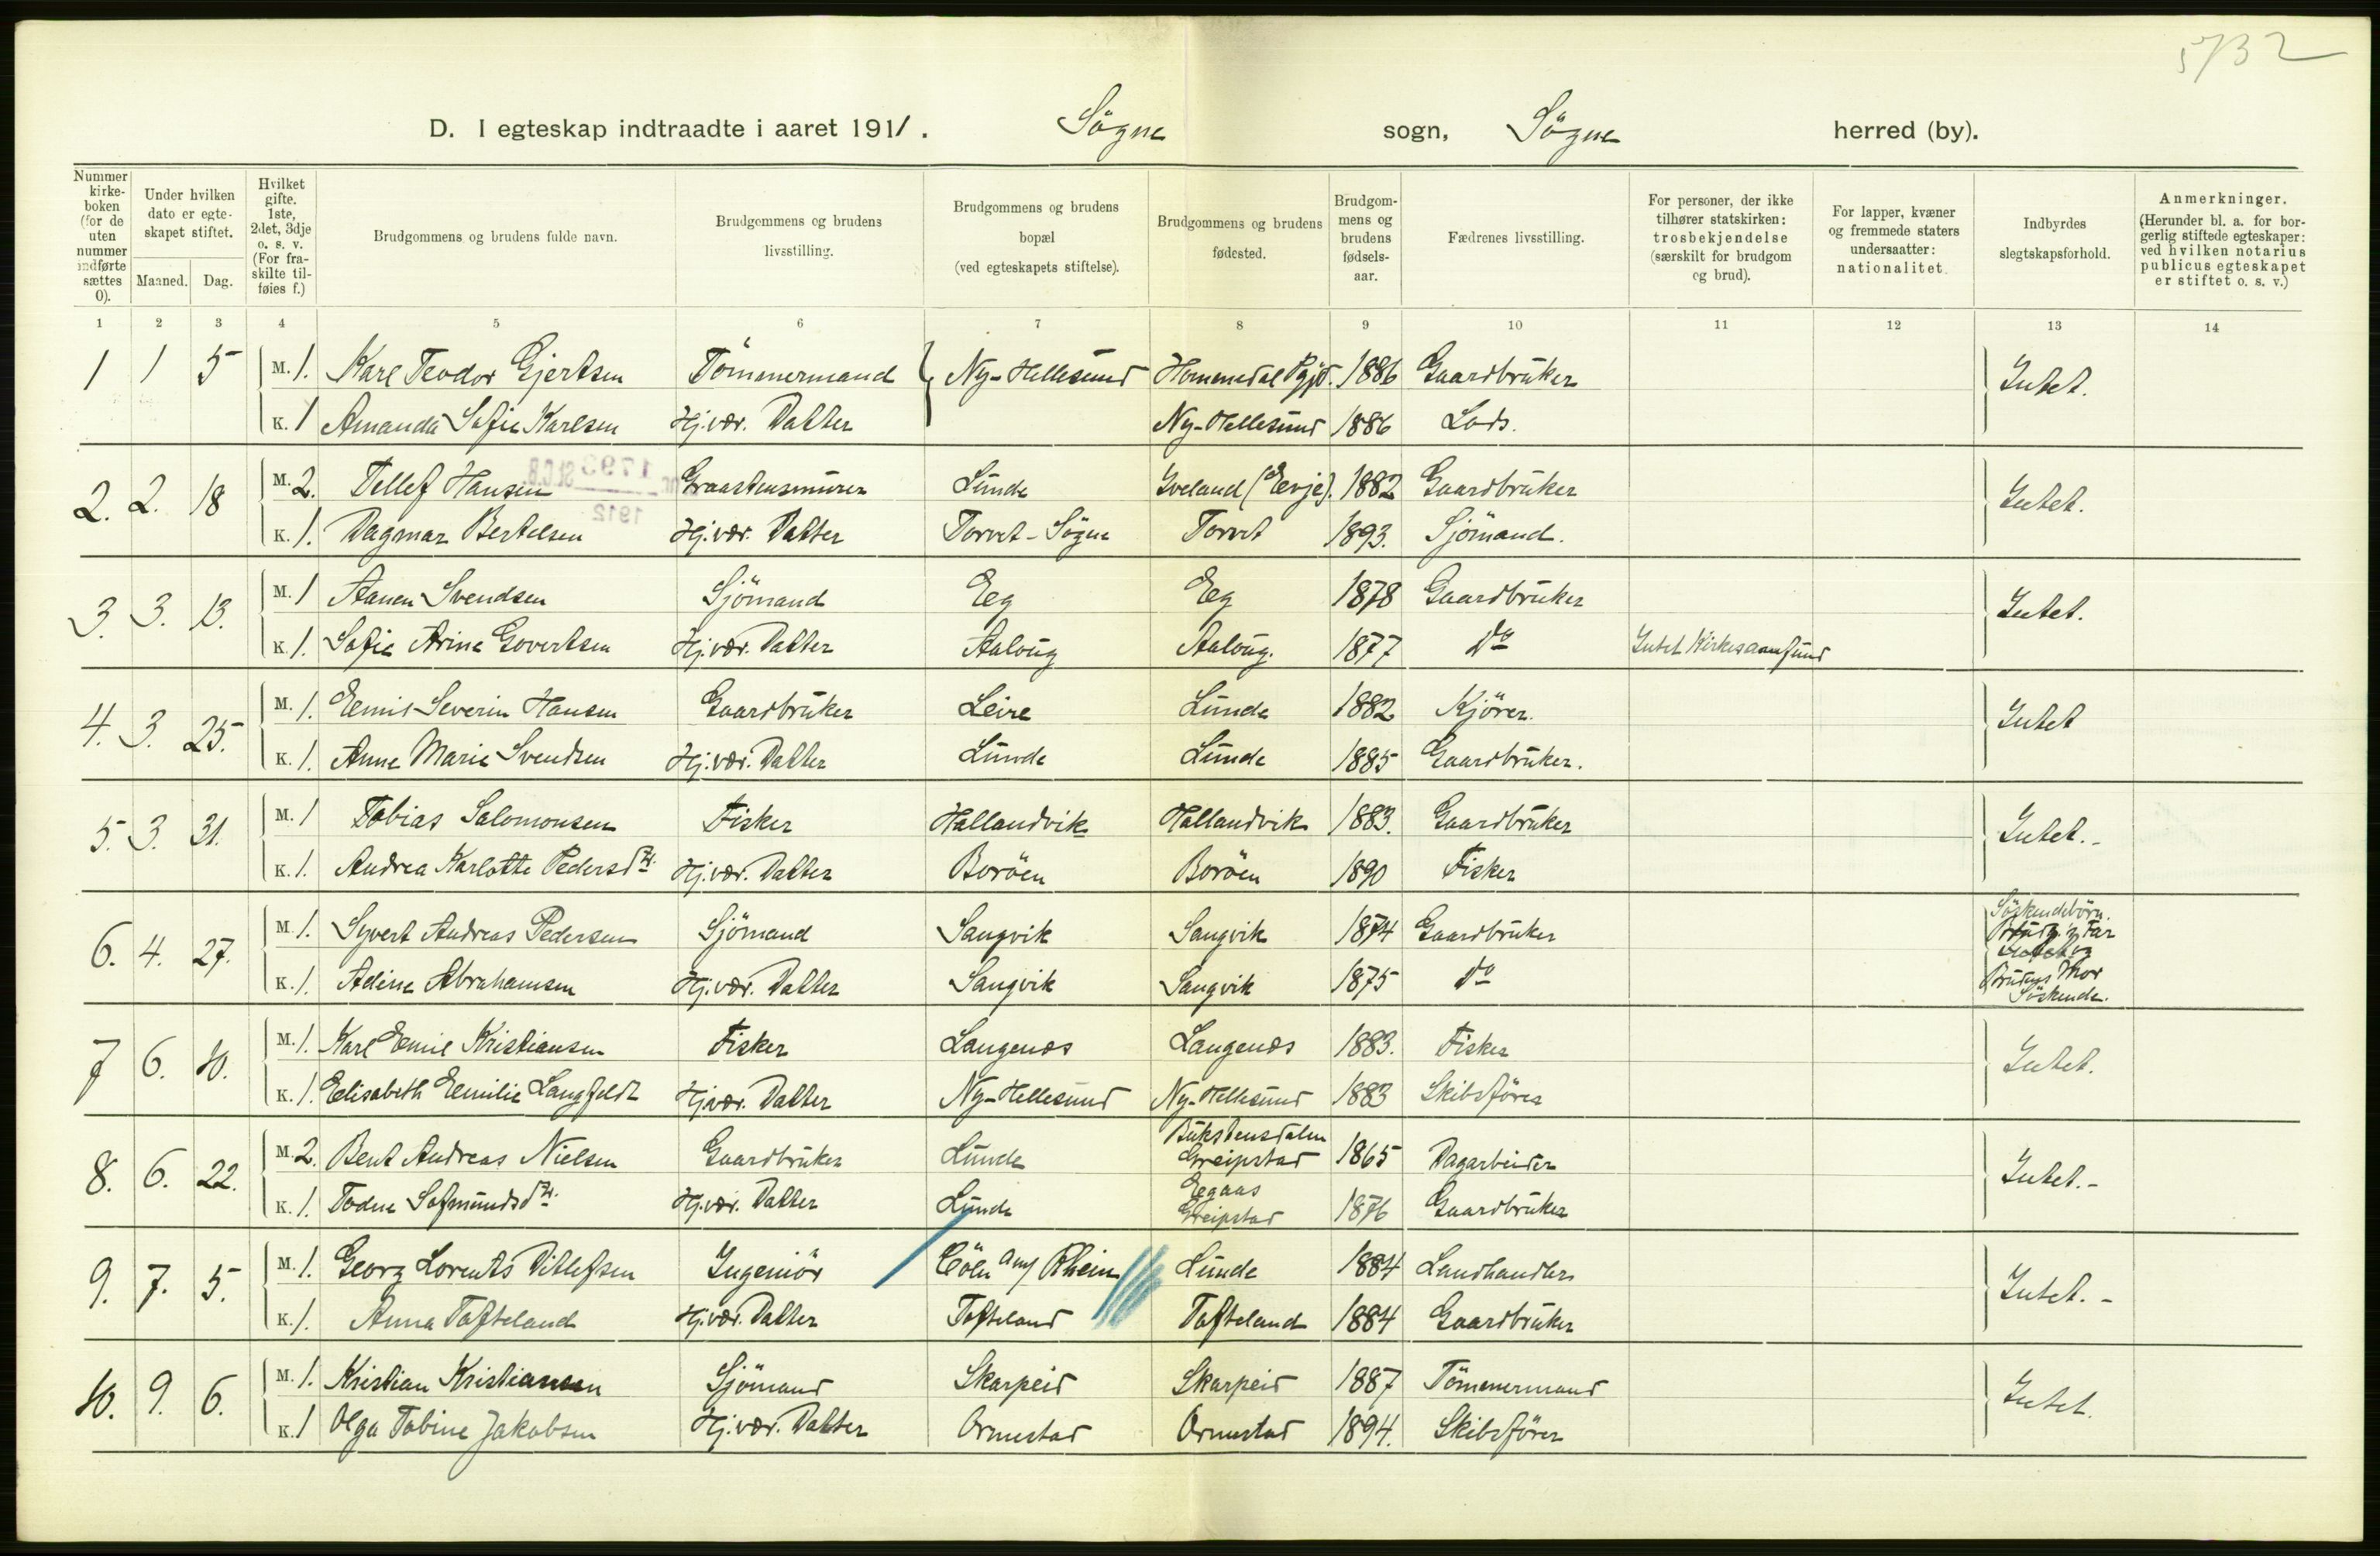 5732
D. I egteskap indtraadte i aaret 1911. Søgne sogn, Søgne herred (by).
Nummer kirke-boken (for de uten nummer indførte sættes 0).
Under hvilken dato er egte-skapet stiftet.
Maaned. Dag.
Hvilket gifte. 1ste, 2det, 3dje o. s. v. (For fra-skilte til-føies f.)
Brudgommens og brudens fulde navn.
Brudgommens og brudens livsstilling.
Brudgommens og brudens bopæl (ved egteskapets stiftelse).
Brudgommens og brudens fødested.
Brudgom-mens og brudens fødsels-aar.
Fædrenes livsstilling.
For personer, der ikke tilhører statskirken: trosbekjendelse (særskilt for brudgom og brud).
For lapper, kvæner og fremmede staters undersaatter: nationalitet.
Indbyrdes slegtskapsforhold.
Anmerkninger. (Herunder bl. a. for bor-gerlig stiftede egteskaper: ved hvilken notarius publicus egteskapet er stiftet o. s. v.)
1 2 3 4 5 6 7 8 9 10 11 12 13 14
1 1 5 M. 1. Karl Teodor Gjertsen Tömmermand Ny-Hellesund Hommedal Pgjd. 1886 Gaardbruker Intet.
K. 1 Amanda Sofie Karlsen Hj.vær. Datter Ny-Hellesund 1886 Lods.
2. 2. 18 M. 2. Tellef Hansen Graastensmurer Lunde Iveland (Evje). 1882 Gaardbruker Intet.
K. 1. Dagmar Bertelsen Hj.vær. Datter Torvet-Søgne Torvet 1893. Sjömand.
3. 3. 13. M. 1 Aanen Svendsen Sjömand Eeg Eeg 1878 Gaardbruker Intet.
K. 1. Sofie Arine Govertsen Hj.vær. Datter Aaloug Aaloug. 1877 Do Intet Kirkesamfund
4. 3. 25. M. 1. Emil Severin Hansen Gaardbruker Leire Lunde 1882 Kjörer. Intet
K. 1. Anne Marie Svendsen Hj.vær. Datter Lunde Lunde 1885 Gaardbruker.
5. 3. 31. M. 1 Tobias Salomonsen Fisker Hallandvik Hallandvik 1883. Gaardbruker Intet.-
K. 1. Andrea Karlotte Pedersdtr. Hj.vær. Datter Boröen Boröen 1890 Fisker
6. 4. 27. M. 1. Syvert Andreas Pedersen Sjömand Sangvik Sangvik 1874 Gaardbruker Söskendebörn.
Far
K. 1. Adine Abrahamsen Hj.vær. Datter Sangvik Sangvik 1875 Do Brudens Mor
Söskende.
7 6. 10. M. 1. Karl Emil Kristiansen Fisker Langenes Langenes 1883. Fisker Intet.
K. 1. Elisabeth Emilie Langfeldt Hj.vær. Datter Ny-Hellesund Ny-Hellesund 1883 Skibsförer
8. 6. 22. M. 2. Bent Andreas Nielsen Gaardbruker Lunde Bukstensdalen Greipstad 1865 Dagarbeider Intet.-
K. 1. Todne Sofmundsdtr. Hj.vær. Datter Lunde Egaas Greipstad 1876 Gaardbruker
9. 7. 5. M. 1. Georg Lorents Ditlefsen Ingeniör Cöln am Rhein Lunde 1884 Landhandler Intet.-
K. 1. Anna Tofteland Hj.vær. Datter Tofteland Tofteland 1884 Gaardbruker
10. 9. 6. M. 1. Kristian Kristiansen Sjömand Skarpeid Skarpeid 1887 Tömmermand Intet.
K. 1 Olga Tobine Jakobsen Hj.vær. Datter Ormestad Ormestad 1894. Skibsförer